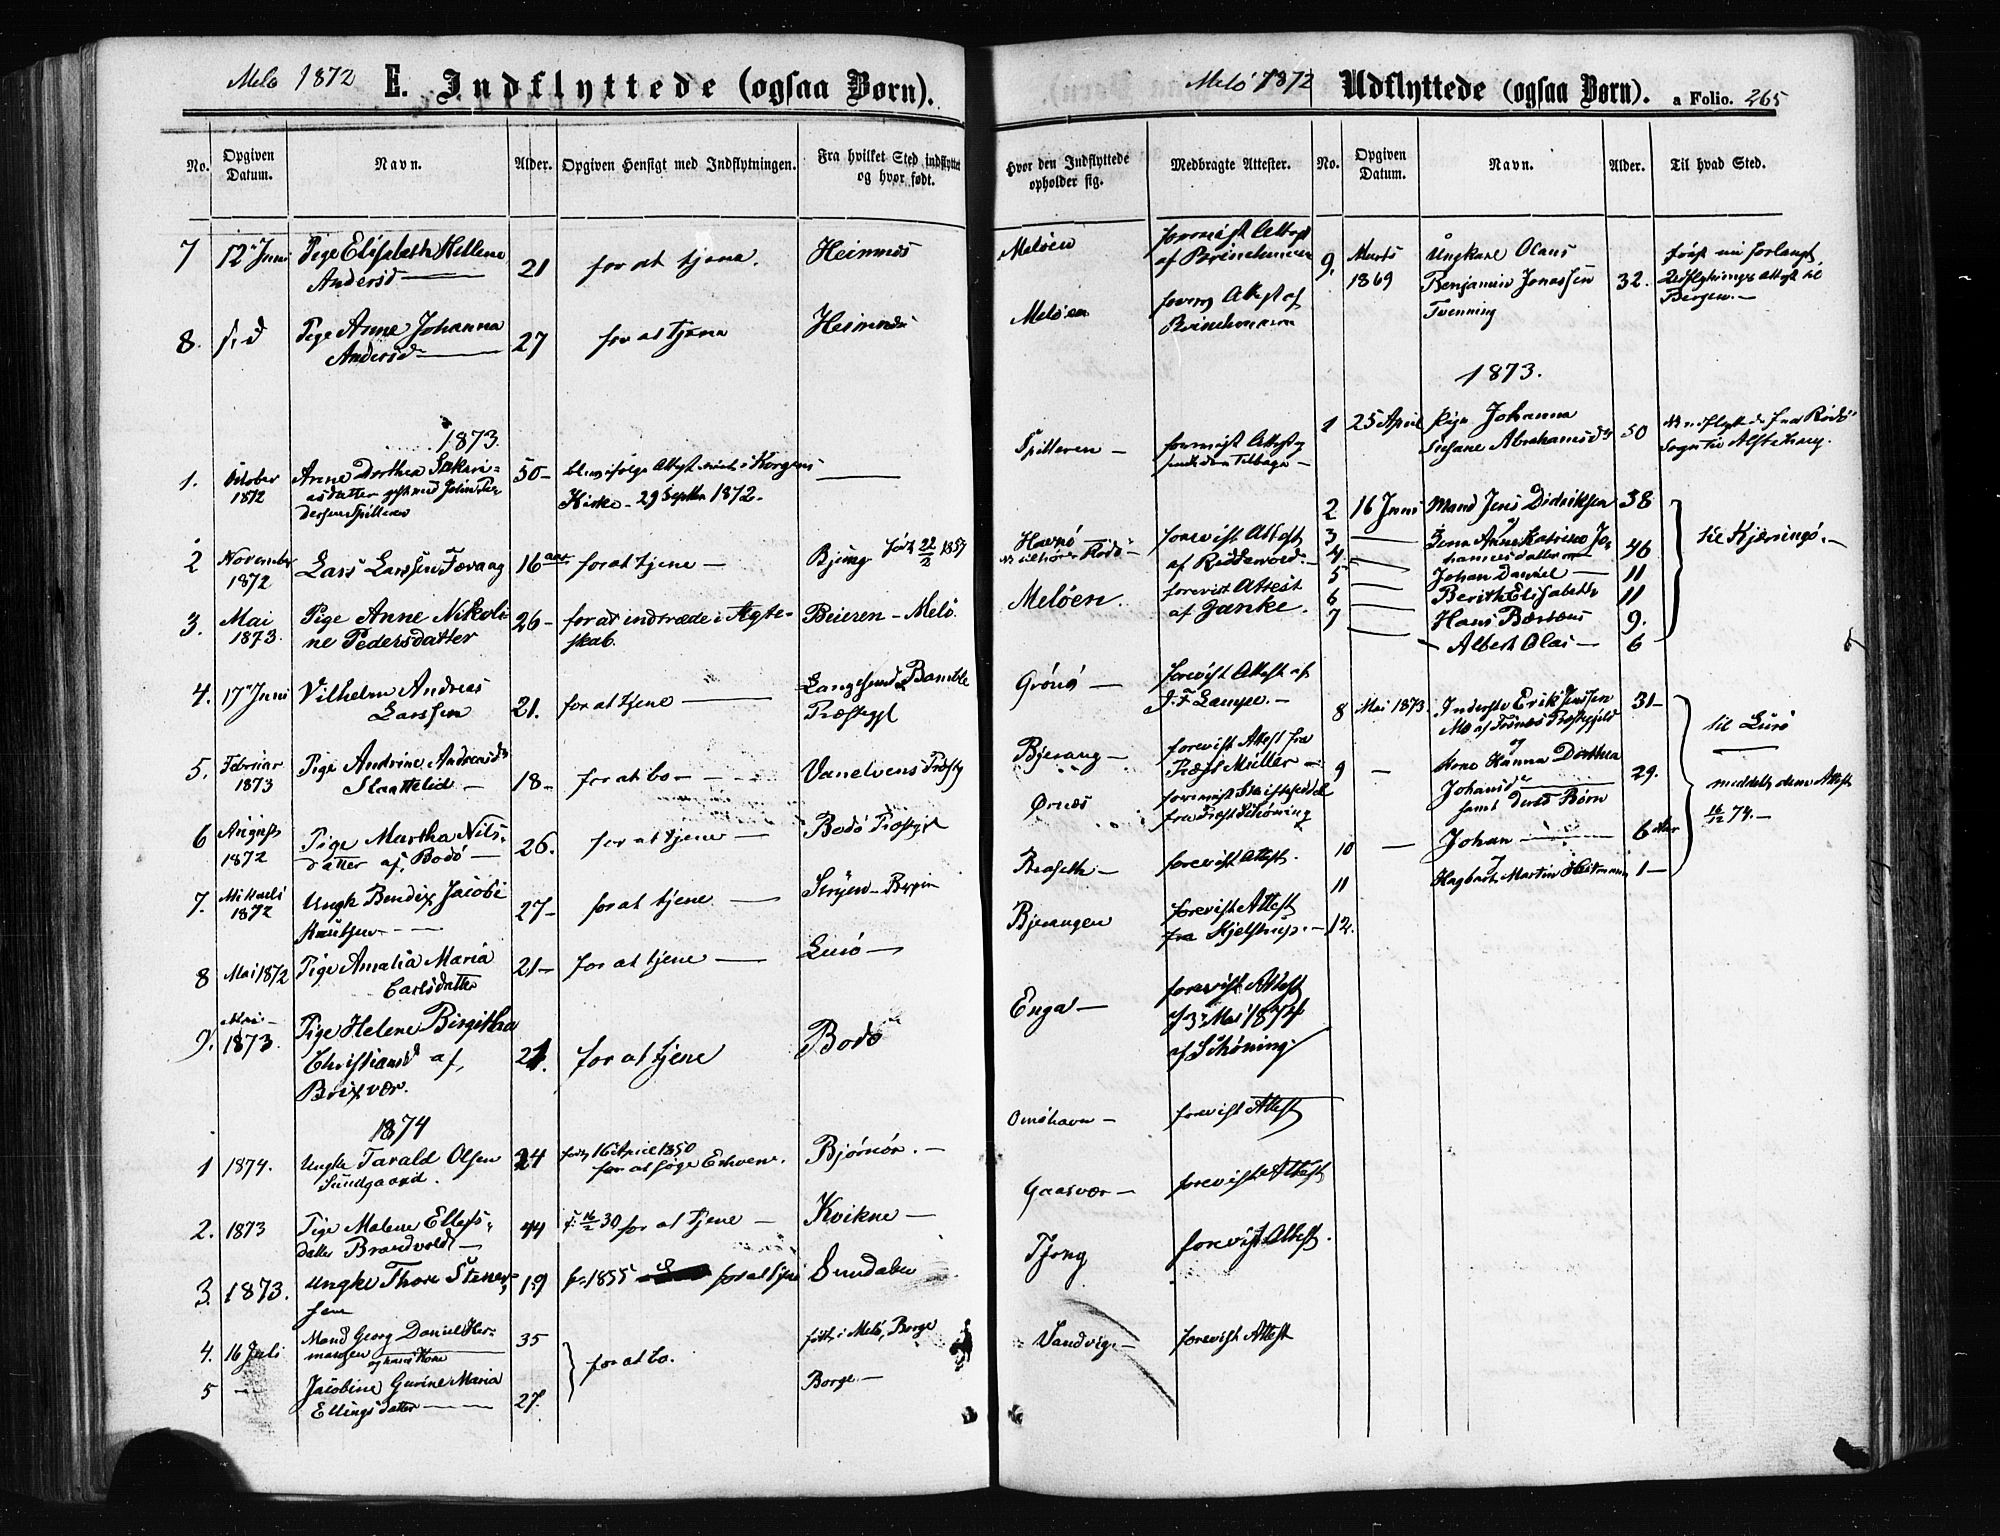 Melø 1872 E. Indflyttede (ogsaa Børn).
No.
Opgiven Datum.
Navn.
Alder.
Opgiven Hensigt med Indflytningen.
Fra hvilket Sted indflyttet og hvor født.
7 12 Juni Pige Elisabeth Hellene 21 for at tjene. Heimnes
Andersd
8. Pige Anne Johanna 27 for at tjene Heimnes
Andersd
1873
1. October Anne Dorthea Sakari= 50
1872 asdatter gift med Johan Pe-
dersen Spilderen Kirke 29 Septbr 1872.
2 November Lars Larssen 16 aar for at tjene Bjerng født 22/2 1857
1872
3. Mai Pige Anne Nikoli- 26 for at indtræde i Ægte- Beieren - Melø
1873. ne Pedersdatter skab.
4. 17 Juni Vilhelm Andreas 21. for at tjene Langesund Bamble
Larssen Præstegjl
5. Februar Pige Andrine Andreasd 18 for at bo Vanelvens Præstg
1873 Slaattelid
6 August Pige Martha Nils- 26. for at tjene Bodø Præstgjl
1872 datter af Bodø
7. Mikaeli Ungk Bendix Jacobi 27 for at tjene Stryen - Bergen
1872 Knutsen
8 Mai 1872 Pige Amalia Maria 21 for at tjene Lurø
Carlsdatter
9. Mai Pige Helene Birgitha 21. for at tjene Bodø
1873 Christiansd af
Brixvær.
1874
1 1874. Ungk Tarald Olsen 24 født 16 April 1850 Bjørnør.
Sundgaard. for at søge Erhverv.
2. 1873 Pige Malene Ellefs- 44 f. 16/2 30 for at tjene Kvikne
datter Brandvold
3. 1873. Ungk Thore Stener- 19 f. 1855 for at tjene Sundalen
sen
4. 16 Juli Mand Georg Daniel Her- 35 for at bo. født i Melø, Borge
mansen og hans Kone
5 Jacobine Gurine Maria 27. Borge
Ellingsdatter
Melø 1872 Udflyttede (ogsaa Børn). a Folio. 265
Hvor den Indflyttede opholder sig.
Medbragte Attester.
No.
Opgiven Datum.
Navn.
Alder.
Til hvad Sted.
Meløen forevist Attest
af Brinchmann
Meløen Attest af
Brinchmann
9. Marts Ungkarl Olaus
1869 Benjamin Jonassen 32.
Tvenning Bergen.
1873.
Spilderen forevist Attest og
sendt den tilbage
1 25 April Pige Johanna
Susane Abrahamsd 50
Havnø forevist Attest
Rødø af Ridderwold.
2 16 Juni Mand Jens Didriksen 38
3 Anne Katrine Jo-
4. hannesdatter 46
5 Johan Daniel 11 til Kjerringø.
6 Berith Elisabeth 11
7 Hans 9.
Albert Olai 6
Meløen. forevist Attest
af Janke.
Grønø forevist Attest af
J. F. Lampe.
8 Mai 1873. Inderste Erik Jenssen 31
Mo af Præstegjeld til Lurø
og
Bjerang forevist Attest fra
Præst Müller
9 Kone Hanna Dorthea 29.
Johansd meddelt dem Attest
samt deres Børn 16/12 74.
Ørnes
fra Præst Schøning
10 Johan 6 Aar
11 Hagbart Martin 1
12.
Braseth forevist Attest.
Bjerangen forevist Attest
fra Kjelstrup.
Enga forevist Attest
f 3 Mai 1874
af Schøning
Omøhavn forevist Attest
Gaasvær forevist Attest
Tjong forevist Attest.
Sandvig forevist Attest